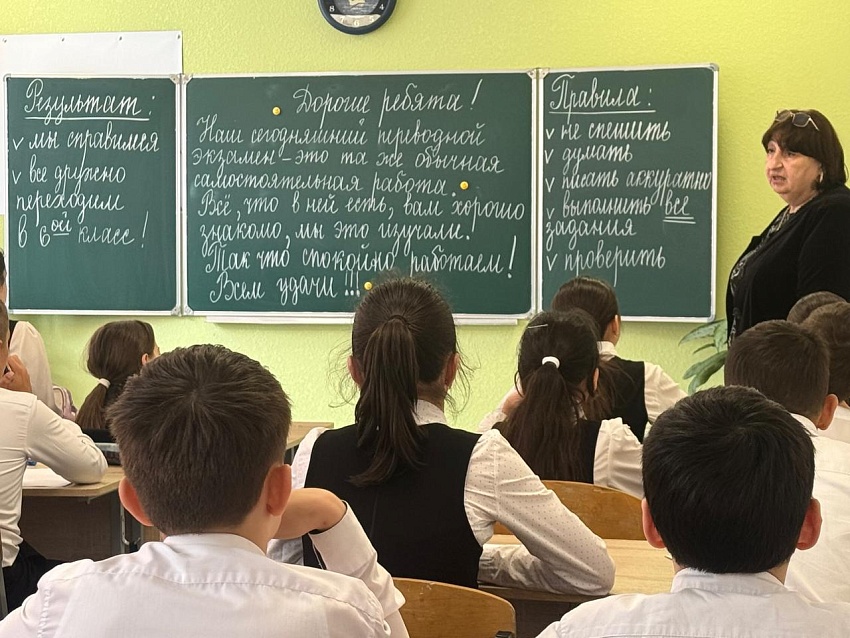 Результат:
v мы справимся
v все дружно
переходим
в 6ой класс!
Дорогие ребята!
Наш сегодняшний переводной
экзамен - это та же обычная
самостоятельная работа.
Всё, что в ней есть, вам хорошо
знакомо, мы это изучали!
Так что спокойно работаем!
Всем удачи!!!
Правила:
v не спешить
v думать
v писать аккуратно
v выполнить все
задания
v проверить